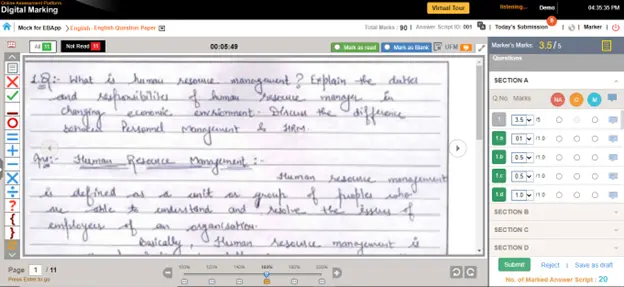 Online Assessment Platform
Digital Marking
Virtual Tour
listening...
Demo
04:35:35 PM
Mock for EBApp > English - English Question Paper
Total Marks : 90 | Answer Script ID: 001
Today's Submission 0
Marker
All 11
Not Read 11
00:05:49
Mark as read
Mark as Blank
UFM
Marker's Marks: 3.5 / 5
Questions
SECTION A
Q.No Marks NA O M
1 3.5 /5
1.a 01 /1.0
1.b 0.5 /1.0
1.c 0.5 /1.0
1.d 1.0 /1.0
SECTION B
SECTION C
SECTION D
Submit Reject | Save as draft
No. of Marked Answer Script : 20
1.Q:- What is human resource management? Explain the duties
and responsibilities of human resource manager in
changing economic environment. Discuss the difference
between Personnel management & HRM.
Ans:- Human Resource Management :-
Human resource management
is defined as a unit or group of peoples who
are able to understand and resolve the issues of
employees of an organisation.
Basically, Human resource management is
Page 1 / 11
Press Enter to go
100% 120% 140% 160% 180% 200%